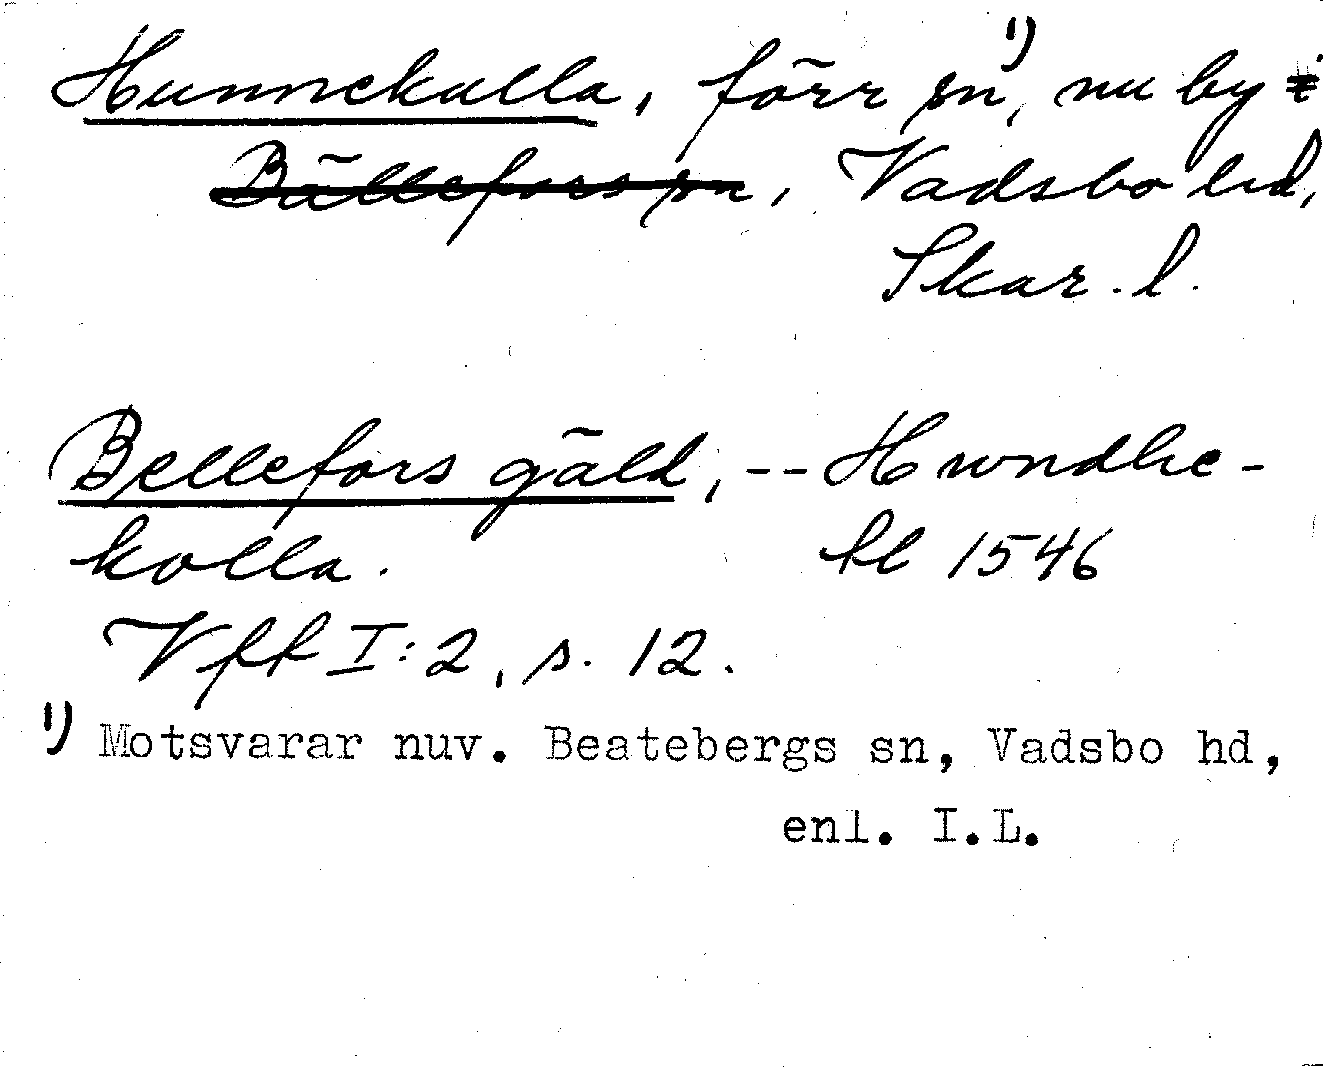 Hunnekulla, förr sn¹⁾, nu by i
Bällefors sn, Vadsbo hd,
Skar. l.
Bellefors gäld, -- Hwndhe-
kolla. hl 1546
Vff I:2, s. 12.
¹⁾ Motsvarar nuv. Beatebergs sn, Vadsbo hd,
enl. I.L.